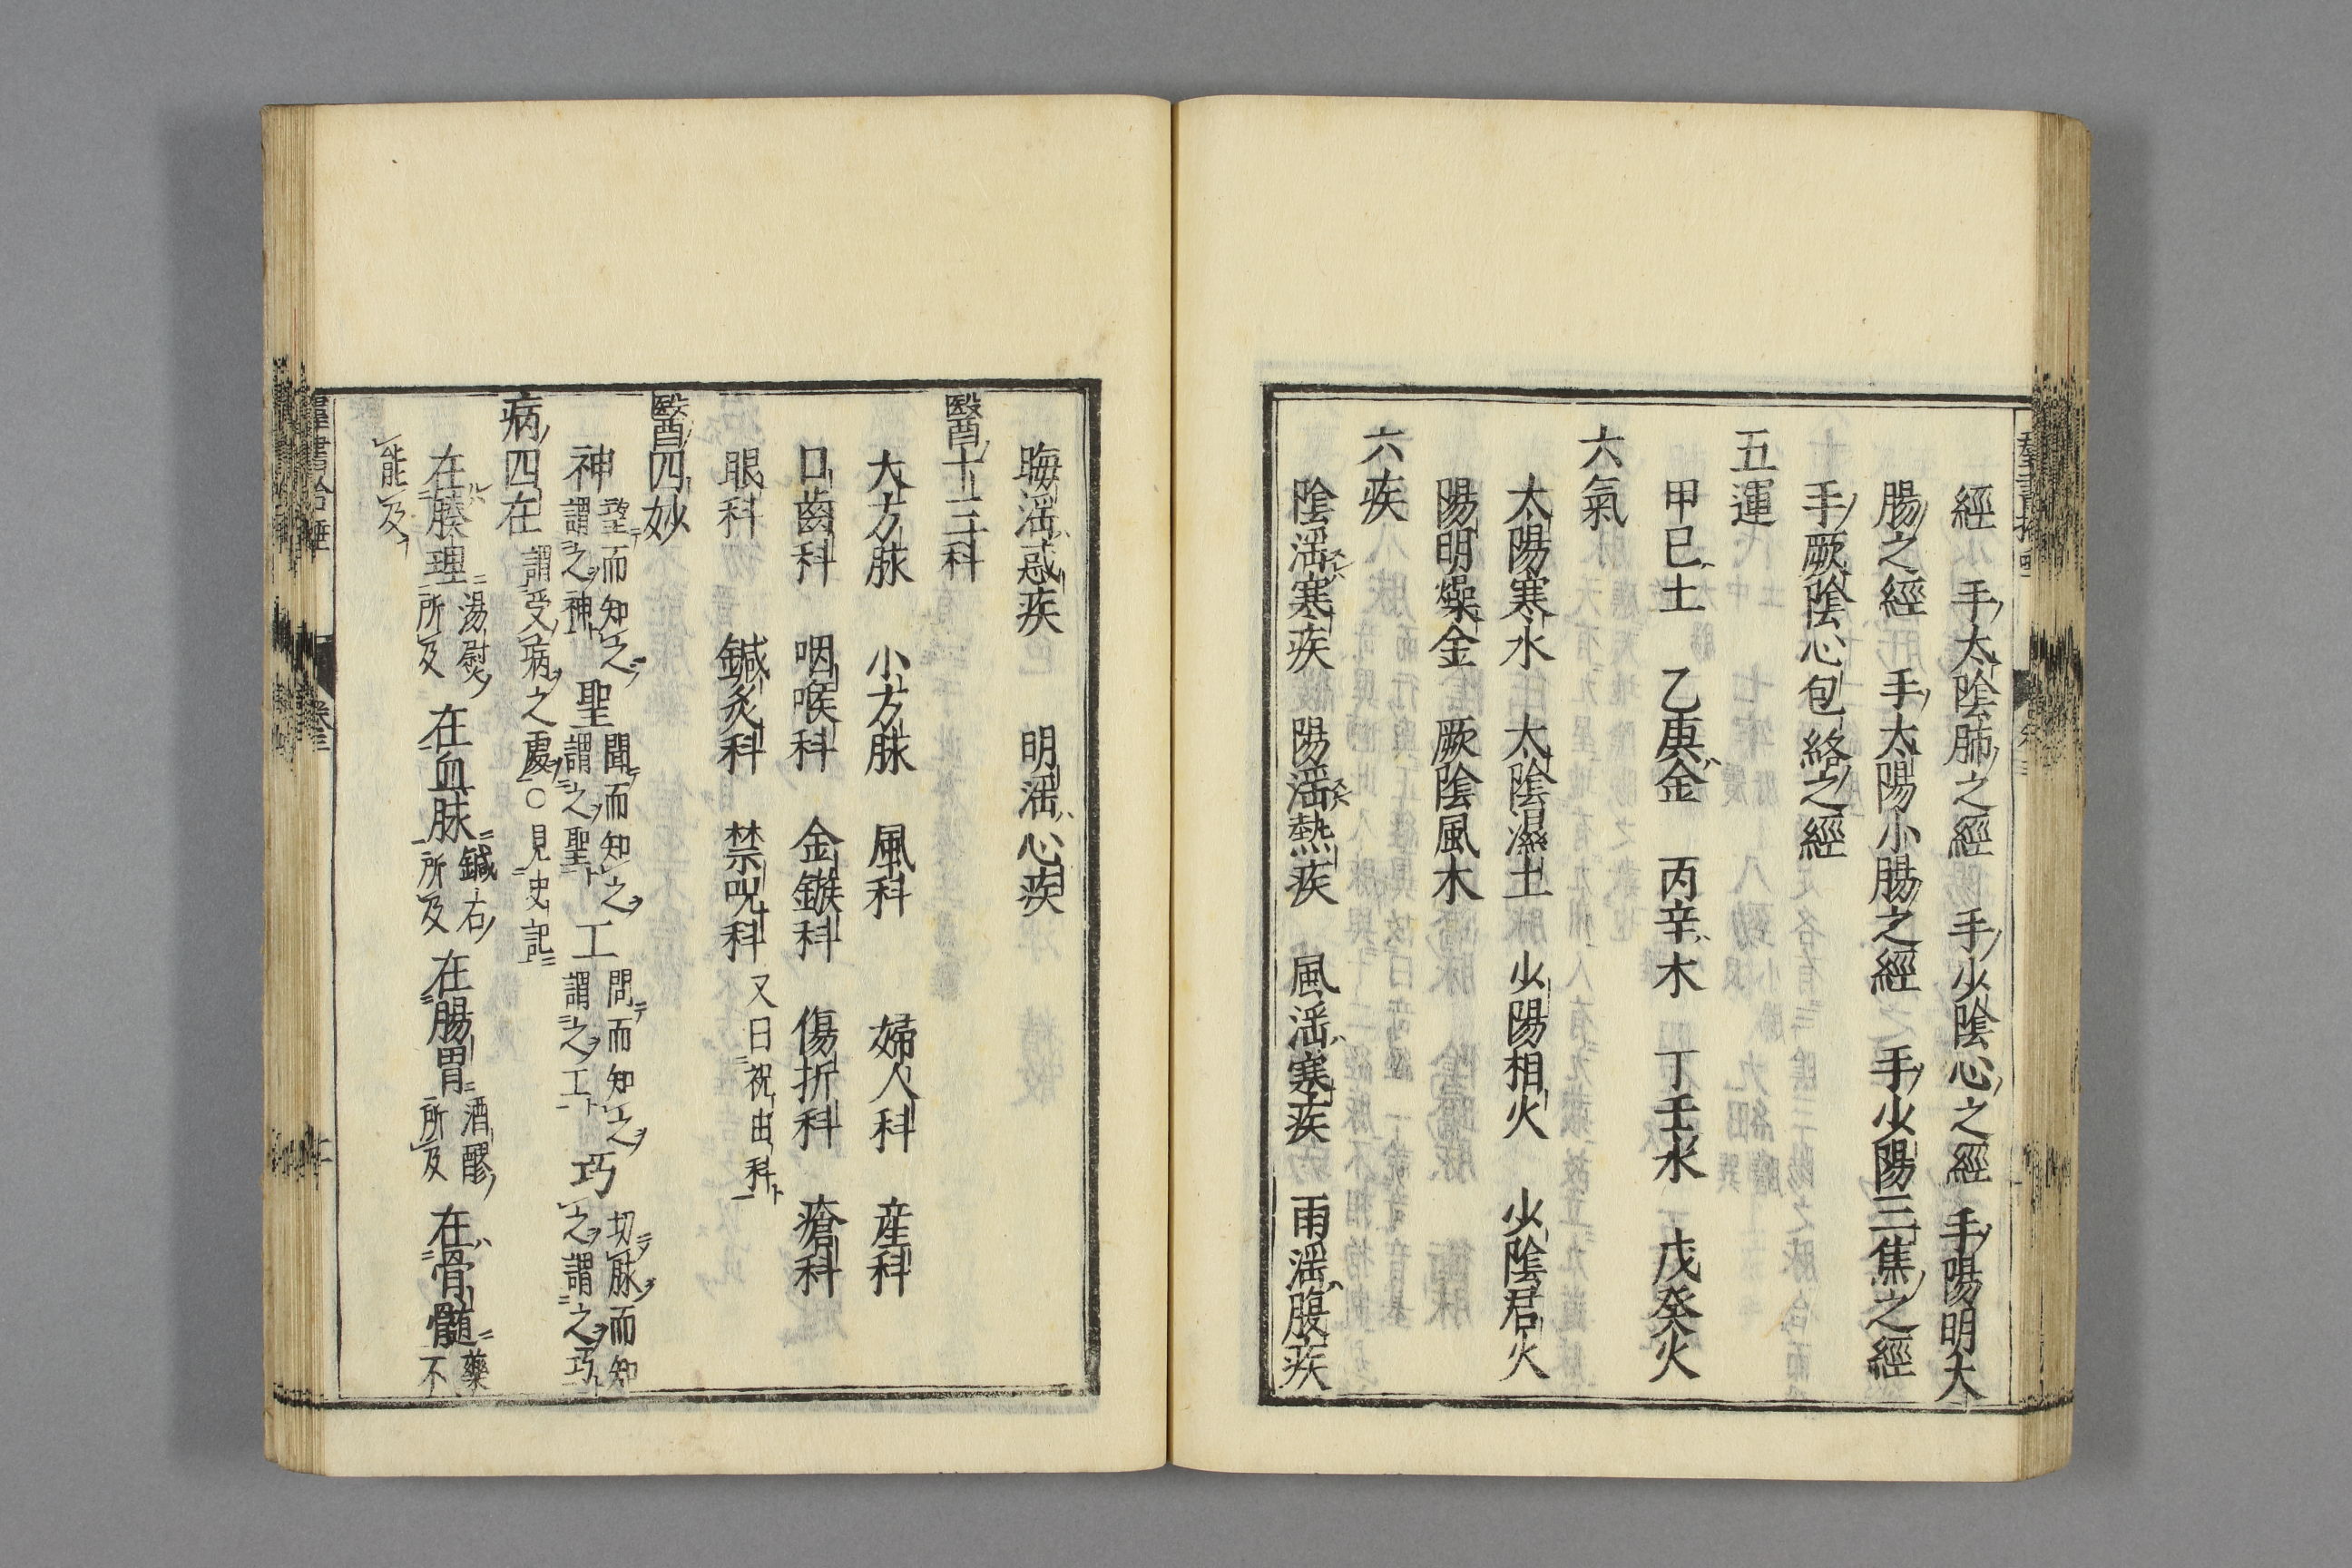 經　手太陰肺之經　手少陰心之經　手陽明大
腸之經　手太陽小腸之經　手少陽三焦之經
手厥陰心包絡之經
五運
甲巳土　乙庚金　丙辛木　丁壬水　戊癸火
六氣
太陽寒水　太陰濕土　少陽相火　少陰君火
陽明燥金　厥陰風木
六疾
陰滛寒疾　陽滛熱疾　風滛寒疾　雨滛腹疾
晦滛惑疾　明滛心疾
醫十三科
大方脉　小方脉　風科　婦人科　産科
口齒科　咽喉科　金鏃科　傷折科　瘡科
眼科　鍼灸科　禁呪科 又曰祝由科
醫四妙
神 望而知之謂之神 聖 聞而知之謂之聖 工 問而知之謂之工 巧 切脉而知之謂之巧
病四在 謂受病之處○見史記
在腠理 湯熨所及 在血脉 鍼石所及 在腸胃 酒醪所及 在骨髓 藥不
能及
羣書拾唾　卷三